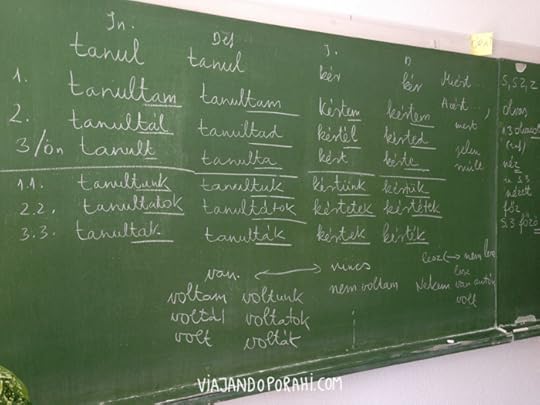 In. Def I. D
tanul tanul kér kér Miért...,
1. tanultam tanultam kértem kértem Azért...,
2. tanultál tanultad kértél kérted mert
3/ön tanult tanulta kért kérte jelen
múlt
1.1. tanultunk tanultuk kértünk kértük
2.2. tanultatok tanultátok kértetek kértétek
3.3. tanultak tanulták kértek kérték
van. ↔ nincs
voltam voltunk nem voltam
voltál voltatok
volt voltak
lesz ↔ nem lesz
Nekem van autóm
volt
s, sz, z
olvas
néz
nézett
főz
VIAJANDOPORAHI.COM